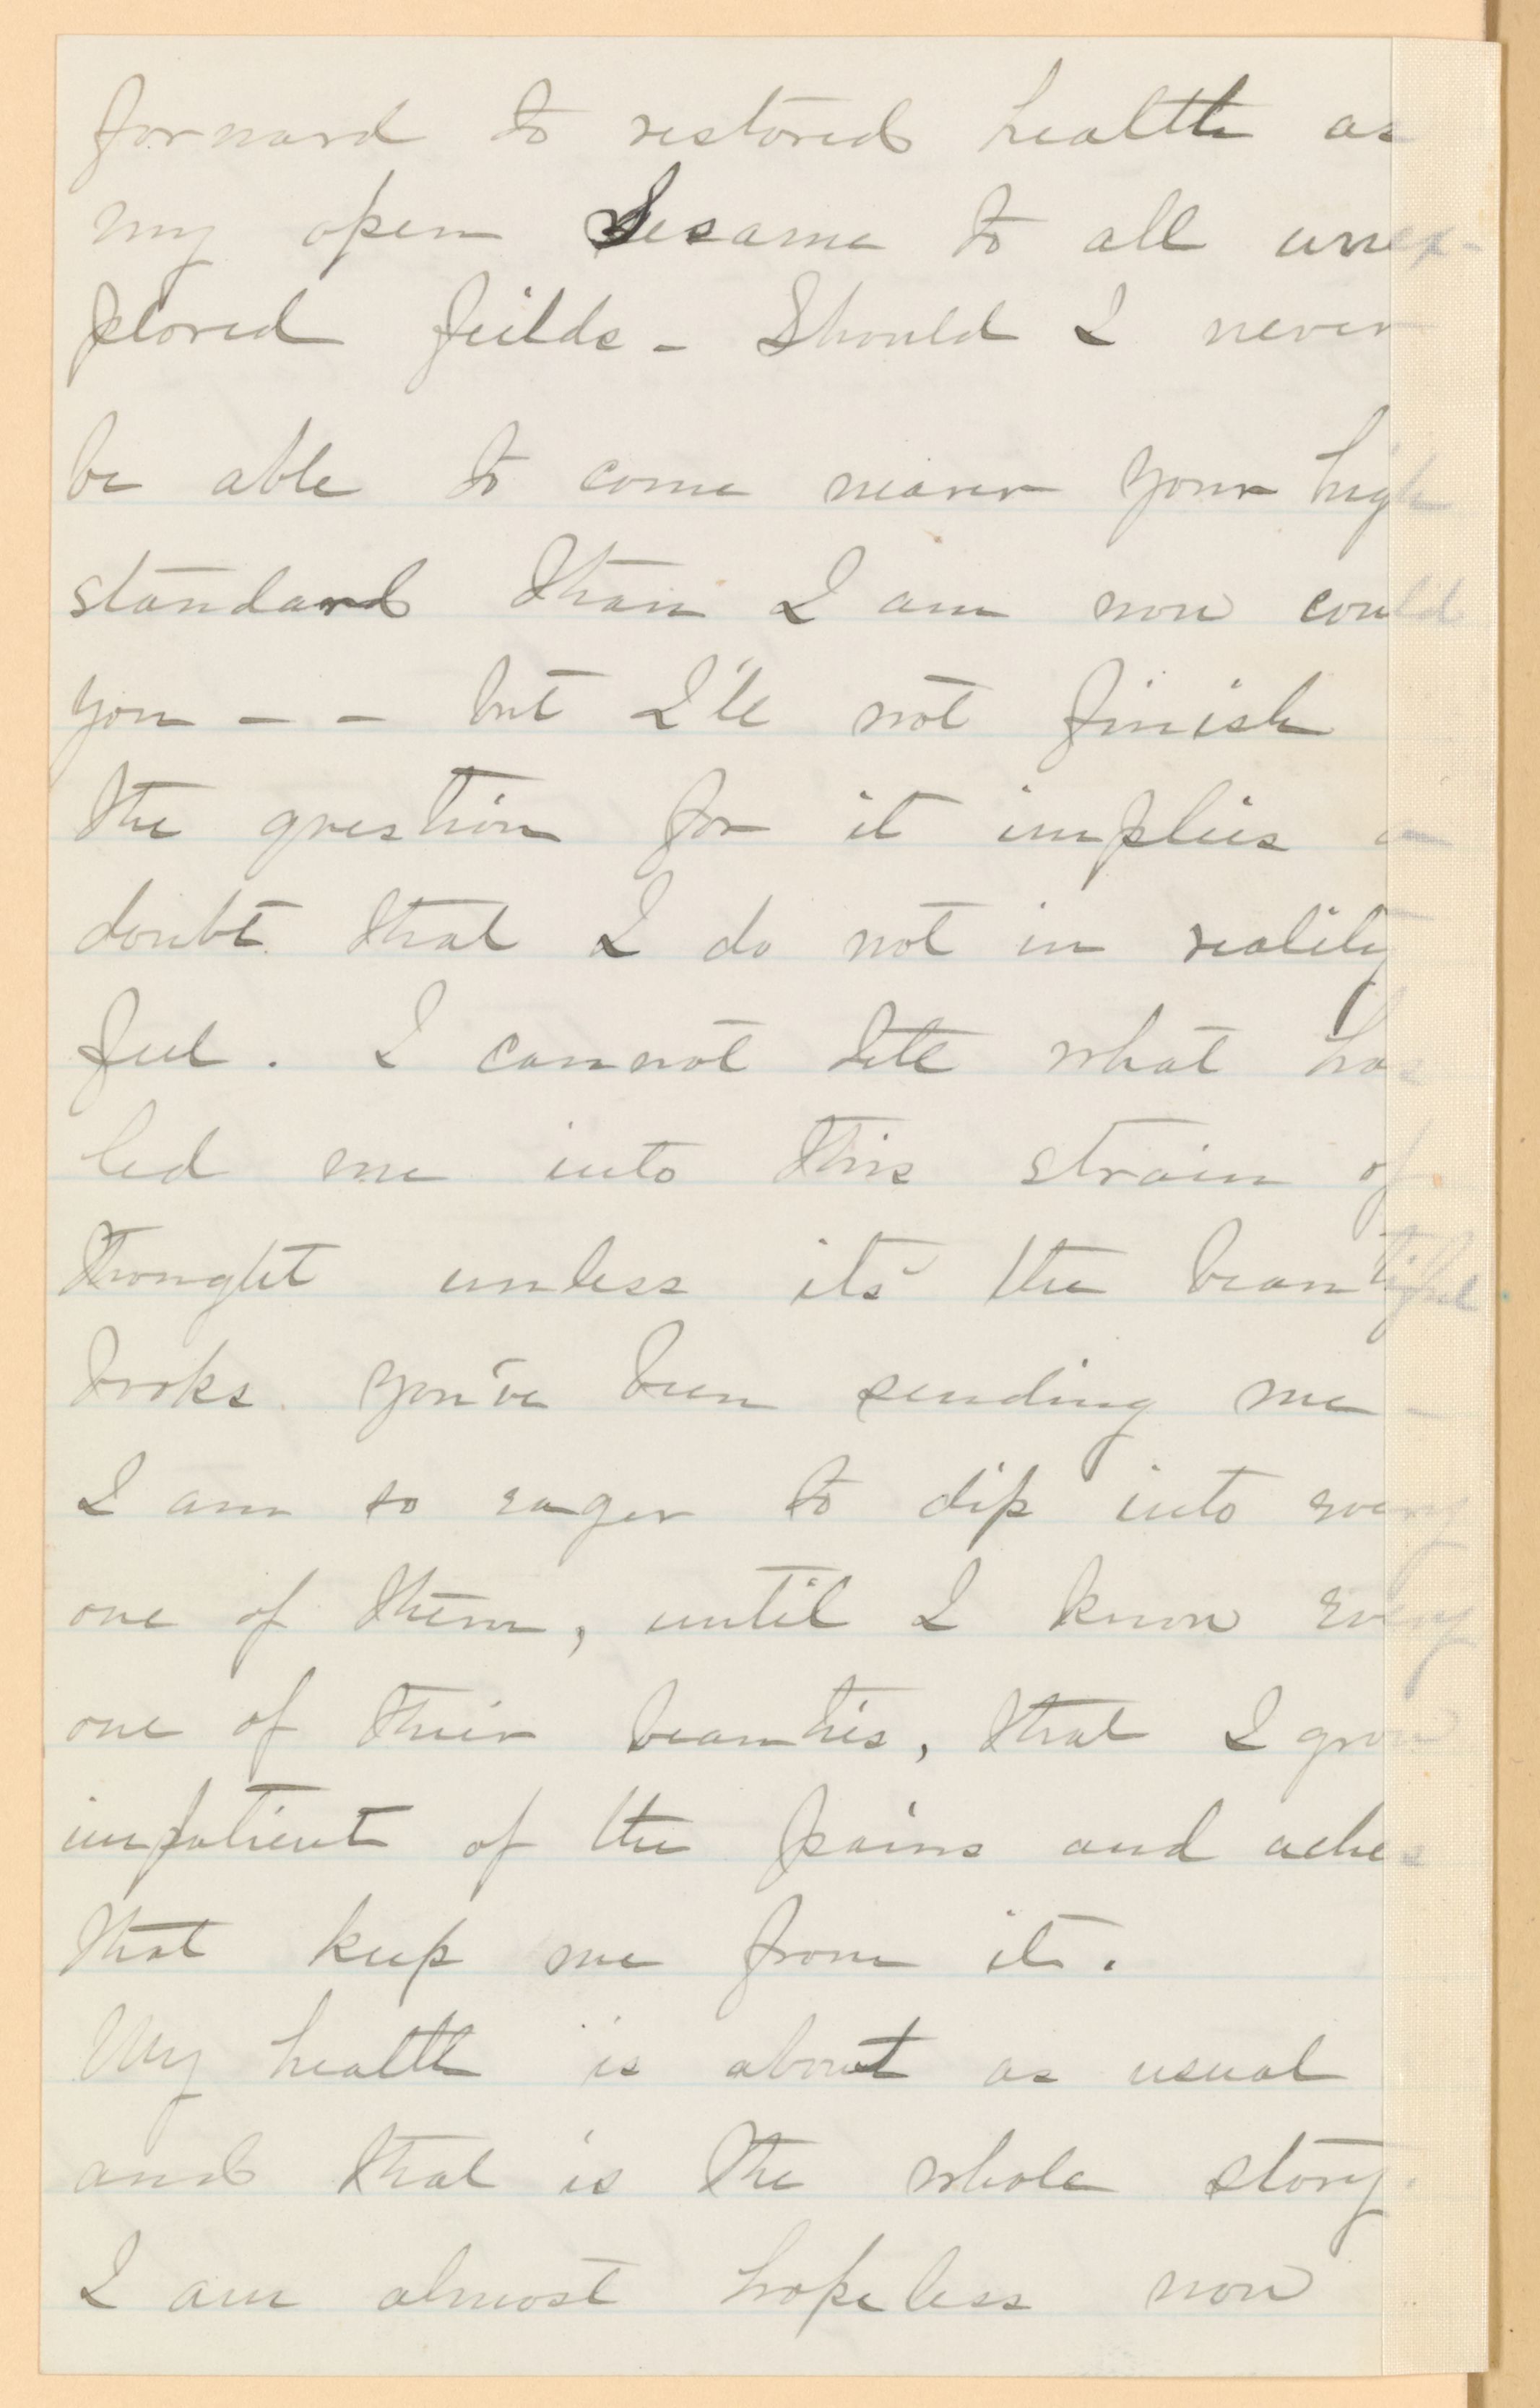 forward to restored health as
my open Sesame to all unex-
plored feilds - Should I never
be able to come nearer your high
standard than I am now could
you - - but I'll not finish
the question for it implies a
doubt that I do not in reality
feel. I cannot tell what has
led me into this strain of
thought unless it's the beautiful
books you've been sending me -
I am so eager to dip into every
one of them, until I know every
one of their beauties, that I grow
impatient of the pains and aches
that keep me from it.
My health is about as usual
and that is the whole story.
I am almost hopeless now